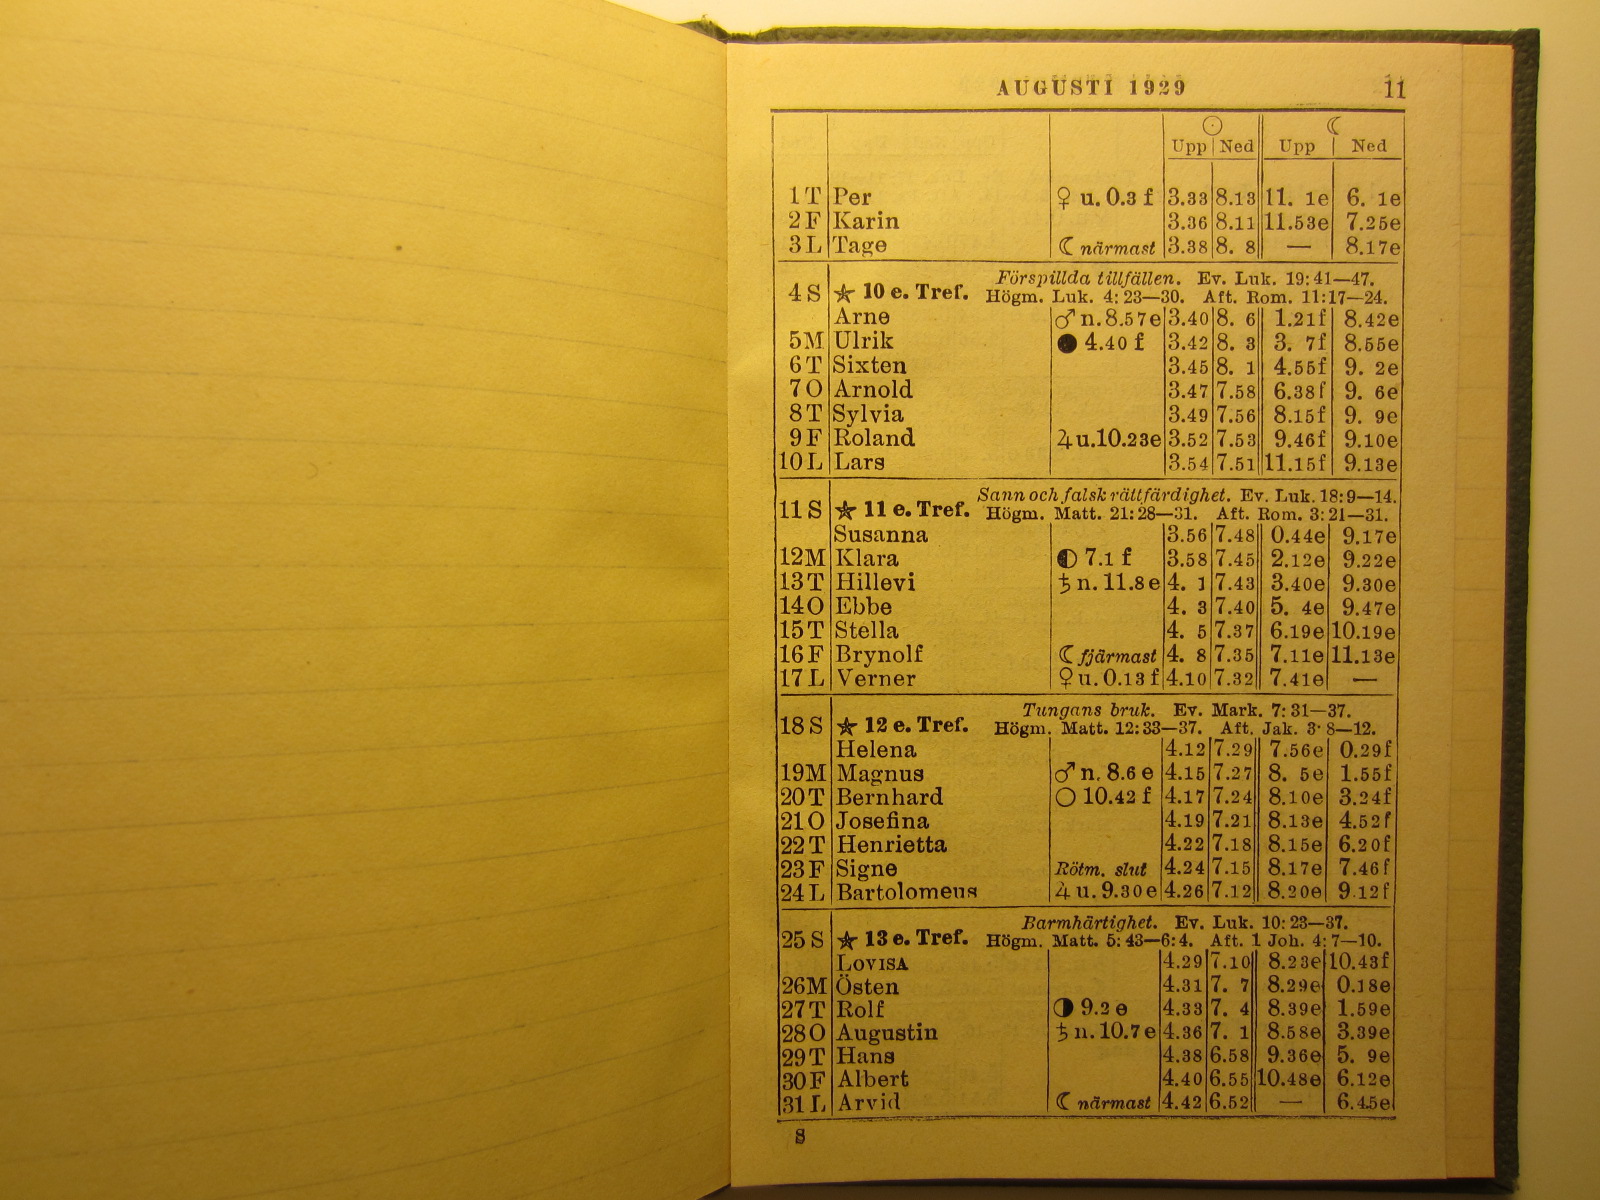 AUGUSTI 1929 11
☉ ☾
Upp Ned Upp Ned
1 T Per ♀ u. 0.3 f 3.33 8.13 11. 1e 6. 1e
2 F Karin 3.36 8.11 11.53e 7.25e
3 L Tage ☾ närmast 3.38 8. 8 — 8.17e
Förspillda tillfällen. Ev. Luk. 19:41—47.
4 S ★ 10 e. Tref. Högm. Luk. 4:23—30. Aft. Rom. 11:17—24.
Arne ♂ n. 8.57e 3.40 8. 6 1.21f 8.42e
5 M Ulrik ● 4.40 f 3.42 8. 3 3. 7f 8.55e
6 T Sixten 3.45 8. 1 4.55f 9. 2e
7 O Arnold 3.47 7.58 6.38f 9. 6e
8 T Sylvia 3.49 7.56 8.15f 9. 9e
9 F Roland ♃ u. 10.23e 3.52 7.53 9.46f 9.10e
10 L Lars 3.54 7.51 11.15f 9.13e
Sann och falsk rättfärdighet. Ev. Luk. 18:9—14.
11 S ★ 11 e. Tref. Högm. Matt. 21:28—31. Aft. Rom. 3:21—31.
Susanna 3.56 7.48 0.44e 9.17e
12 M Klara ◐ 7.1 f 3.58 7.45 2.12e 9.22e
13 T Hillevi ♄ n. 11.8e 4. 1 7.43 3.40e 9.30e
14 O Ebbe 4. 3 7.40 5. 4e 9.47e
15 T Stella 4. 5 7.37 6.19e 10.19e
16 F Brynolf ☾ fjärmast 4. 8 7.35 7.11e 11.13e
17 L Verner ♀ u. 0.13 f 4.10 7.32 7.41e —
Tungans bruk. Ev. Mark. 7:31—37.
18 S ★ 12 e. Tref. Högm. Matt. 12:33—37. Aft. Jak. 3:8—12.
Helena 4.12 7.29 7.56e 0.29f
19 M Magnus ♂ n. 8.6 e 4.15 7.27 8. 5e 1.55f
20 T Bernhard ○ 10.42 f 4.17 7.24 8.10e 3.24f
21 O Josefina 4.19 7.21 8.13e 4.52f
22 T Henrietta 4.22 7.18 8.15e 6.20f
23 F Signe Rötm. slut 4.24 7.15 8.17e 7.46f
24 L Bartolomeus ♃ u. 9.30e 4.26 7.12 8.20e 9.12f
Barmhärtighet. Ev. Luk. 10:23—37.
25 S ★ 13 e. Tref. Högm. Matt. 5:43—6:4. Aft. 1 Joh. 4:7—10.
LOVISA 4.29 7.10 8.23e 10.43f
26 M Östen 4.31 7. 7 8.29e 0.18e
27 T Rolf ◑ 9.2 e 4.33 7. 4 8.39e 1.59e
28 O Augustin ♄ n. 10.7e 4.36 7. 1 8.58e 3.39e
29 T Hans 4.38 6.58 9.36e 5. 9e
30 F Albert 4.40 6.55 10.48e 6.12e
31 L Arvid ☾ närmast 4.42 6.52 — 6.45e
8